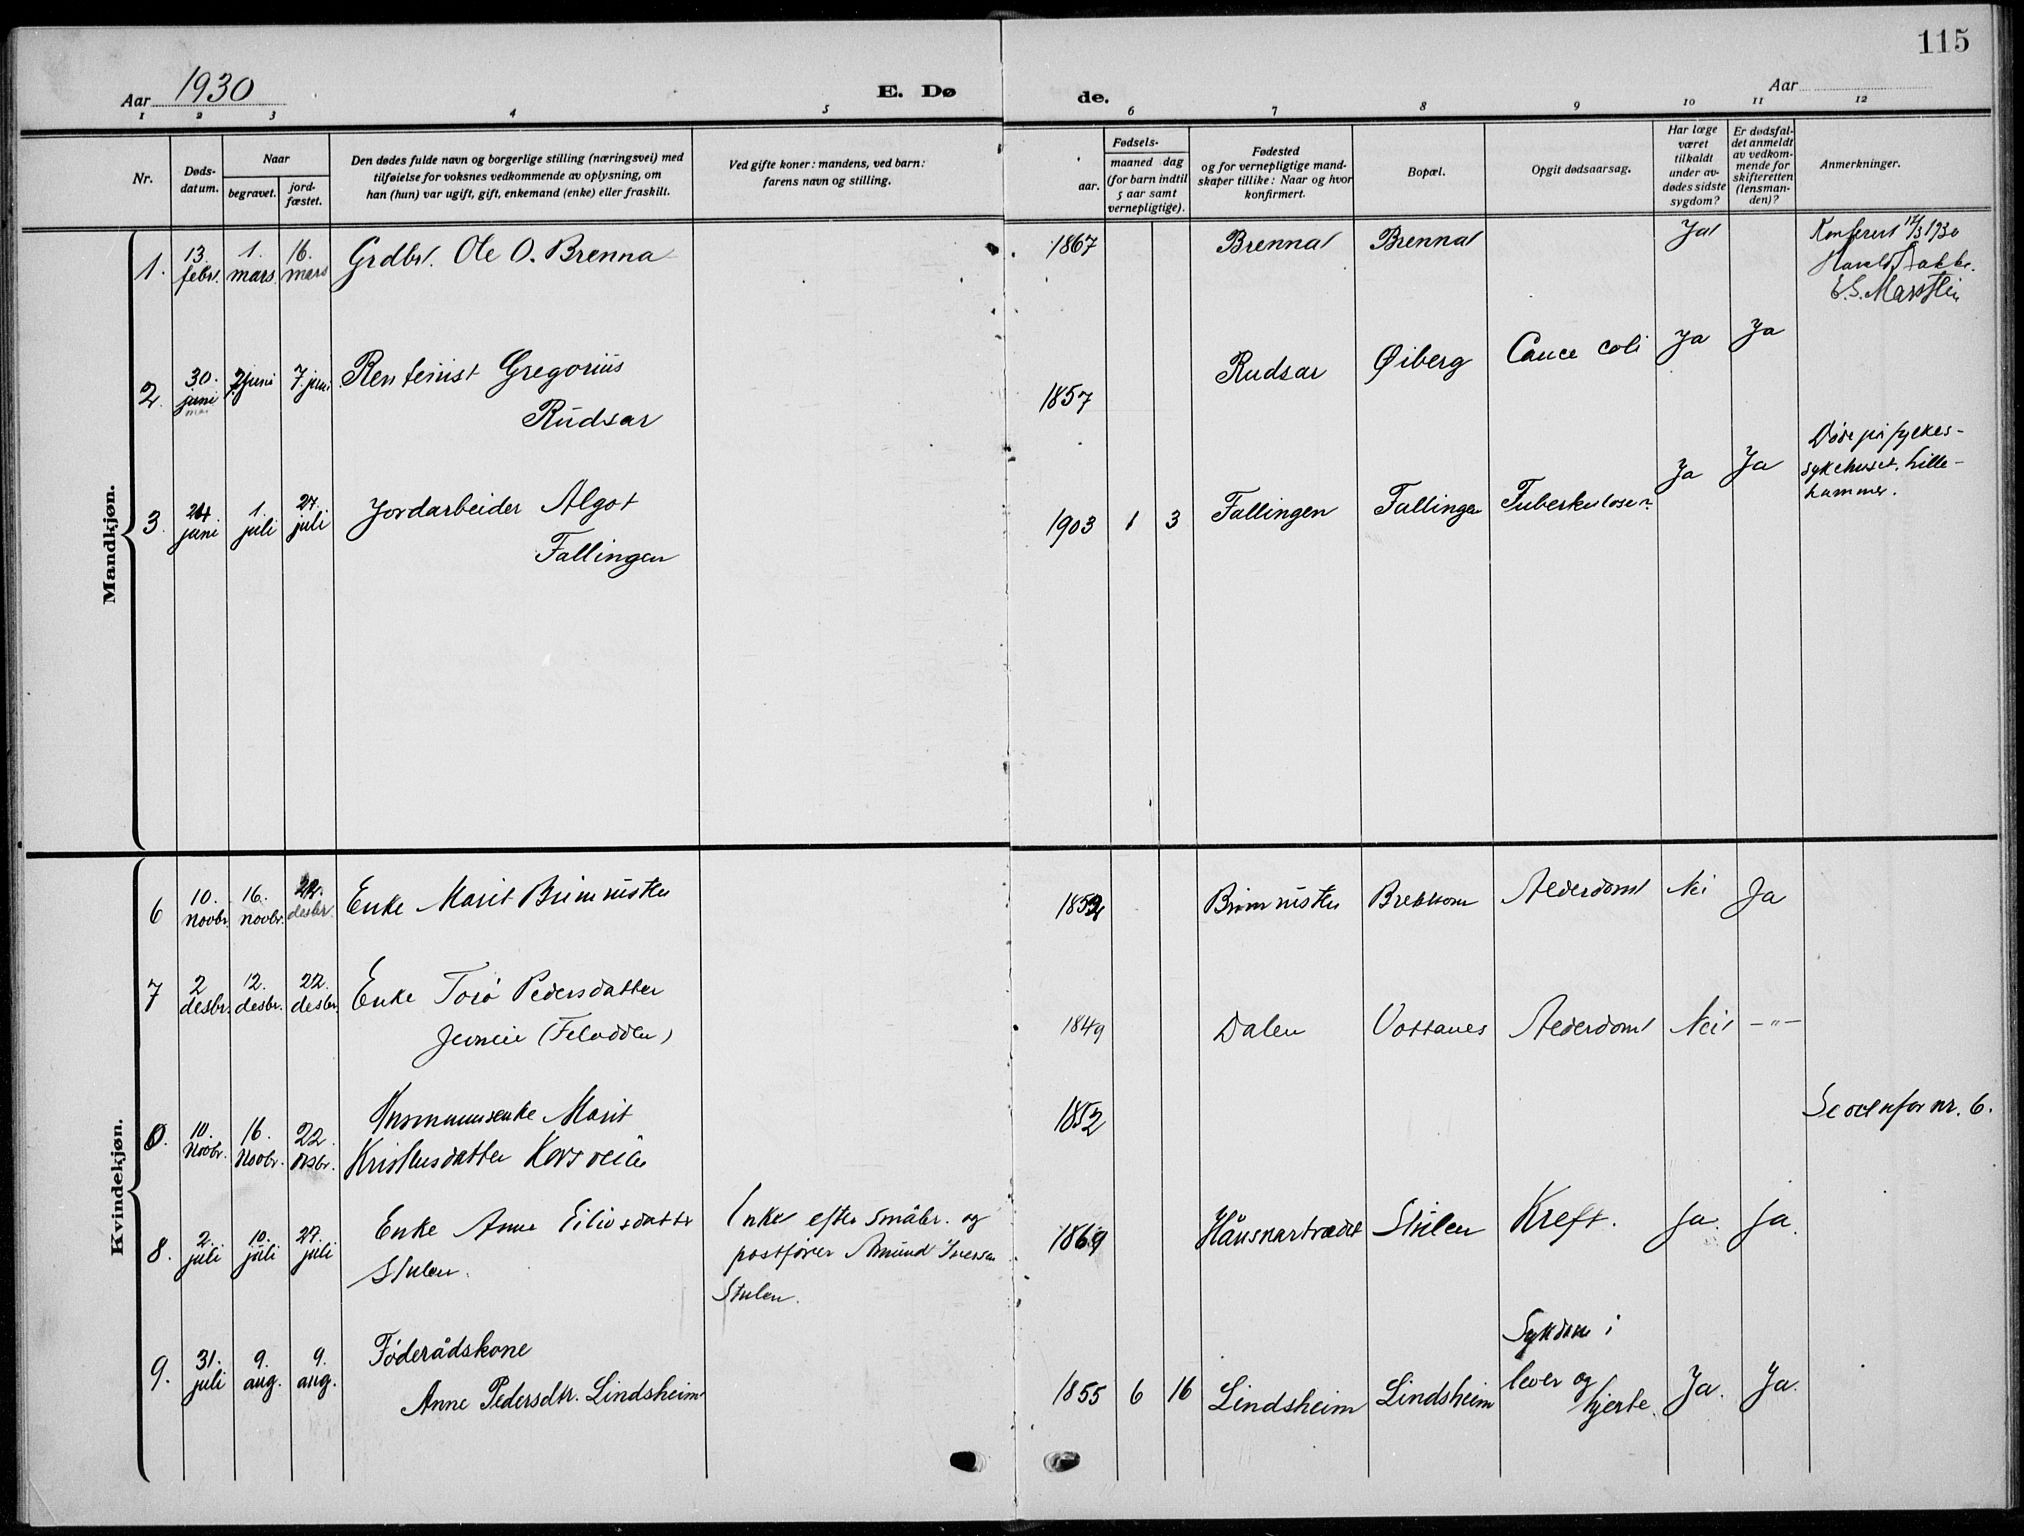 115
Aar 1930
E. Dø de.
Aar
1 2 3 4 5 6 7 8 9 10 11 12
Nr.
Døds-
datum.
Naar
begravet.
jord-
fæstet.
Den dødes fulde navn og borgerlige stilling (næringsvei) med
tilføielse for voksnes vedkommende av oplysning, om
han (hun) var ugift, gift, enkemand (enke) eller fraskilt.
Ved gifte koner: mandens, ved barn:
farens navn og stilling.
Fødsels-
aar.
maaned dag
(for barn indtil
5 aar samt
vernepligtige).
Fødested
og for vernepligtige mand-
skaper tillike: Naar og hvor
konfirmert.
Bopæl.
Opgit dødsaarsag.
Har læge
været
tilkaldt
under av-
dødes sidste
sygdom?
Er dødsfal-
det anmeldt
av vedkom-
mende for
skifteretten
(lensman-
den)?
Anmerkninger.
Mandkjøn.
1. 13. febr. 1. mars 16. mars Grdbr. Ole O. Brenna 1867 Brenna Brenna Ja
Konferert 12/3 1930
Harald Bakke.
E.S. Marstein
2. 30. juni mai 2 juni 7. juni Rentenist Gregorius
Rudsar
1857 Rudsar Øiberg Cance coli Ja Ja
3. 24 juni 1. juli 27. juli Jordarbeider Algot
Fallingen
1903 1 3 Fallingen Fallingen Tuberkulose Ja Ja
Døde på fylkes-
sykehuset, Lille-
hammer.
Kvindekjøn.
6 10. novbr. 16. novbr. 22. desbr. Enke Marit Brimrusten 1852 Brimrusten Brekkom Alderdom Nei Ja
7 2 desbr. 12. desbr. 22. desbr. Enke Torø Pedersdatter
1849 Dalen Alderdom Nei -"-
0. 10. Novbr. 16. Novbr. 22. desbr. Marit
Korsveien
1852
Se ovenfor nr. 6.
8. 2. juli 10. juli 27. juli Enke Anne Eilivsdatter
Stulen.
Enke efter småbr. og
postfører Amund Iversen
Stulen.
1869 Stulen Kreft. Ja. Ja.
9. 31. juli 9. aug. 9. aug. Føderådskone
Anne Pedersdtr. Lindsheim
1855 6 16 Lindsheim Lindsheim
Sykdom i
lever og
hjerte.
Ja. Ja.